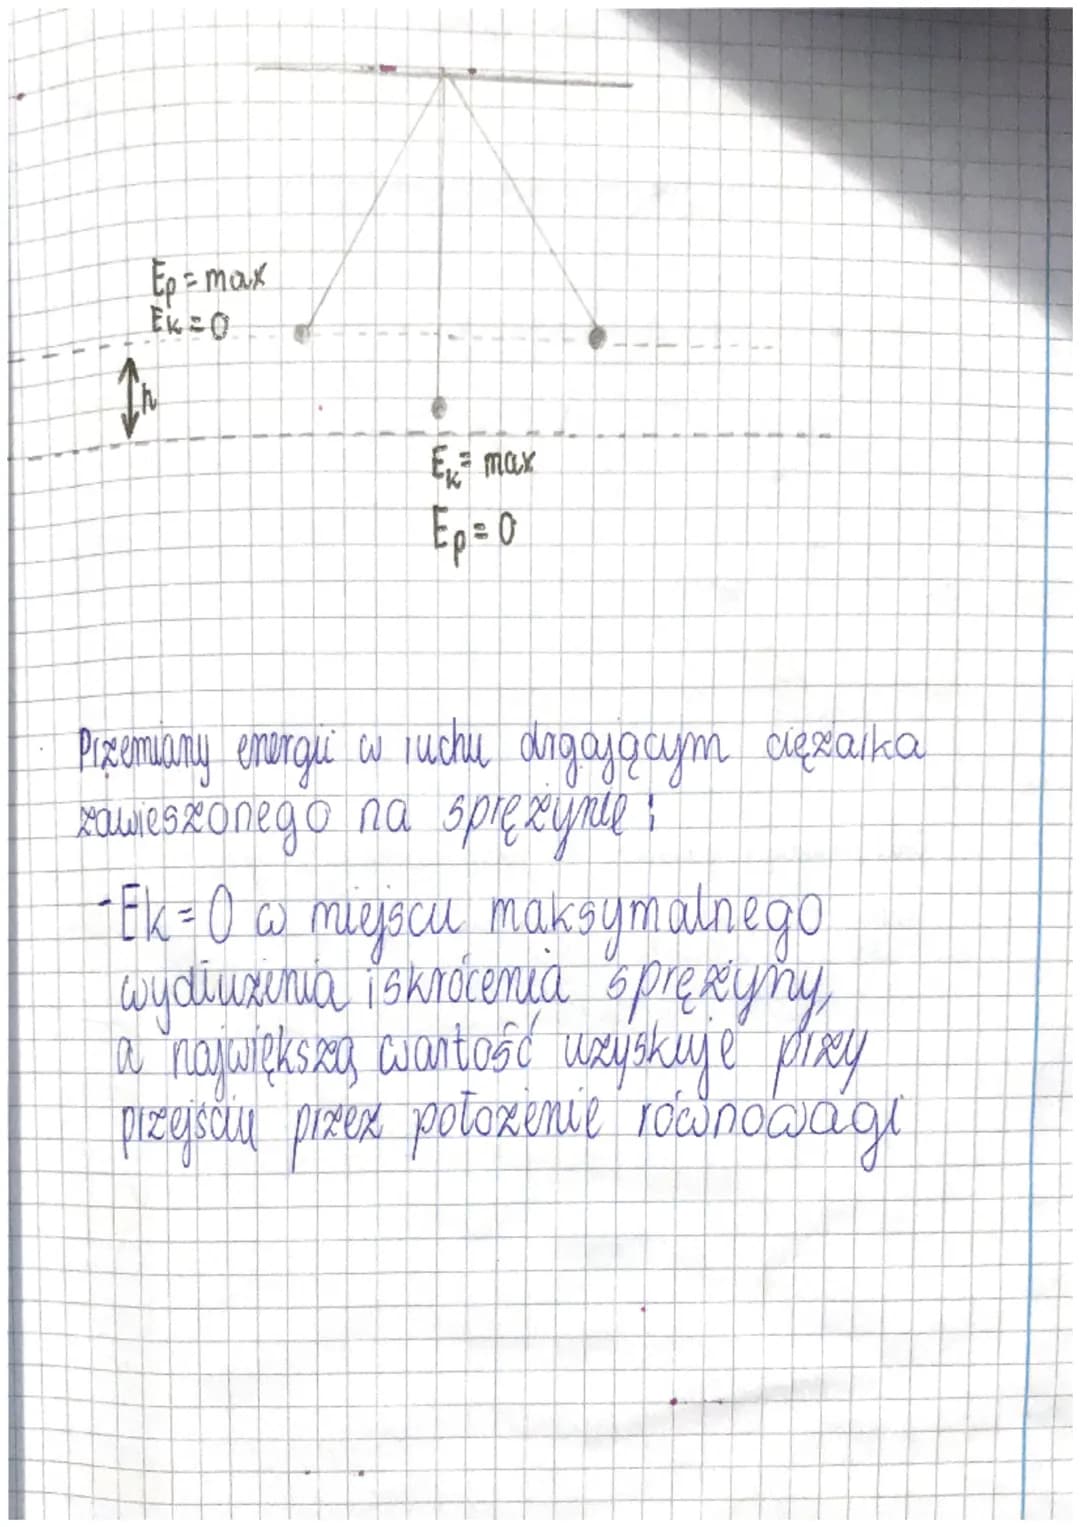 Ep = max
Ek = 0
h
Ek = max
Ep = 0
Przemiany energii w ruchu drgającym ciężarka
zawieszonego na sprężynie :
- Ek = 0 w miejscu maksymalnego
wydłużenia i skrócenia sprężyny,
a największą wartość uzyskuje przy
przejściu przez położenie równowagi